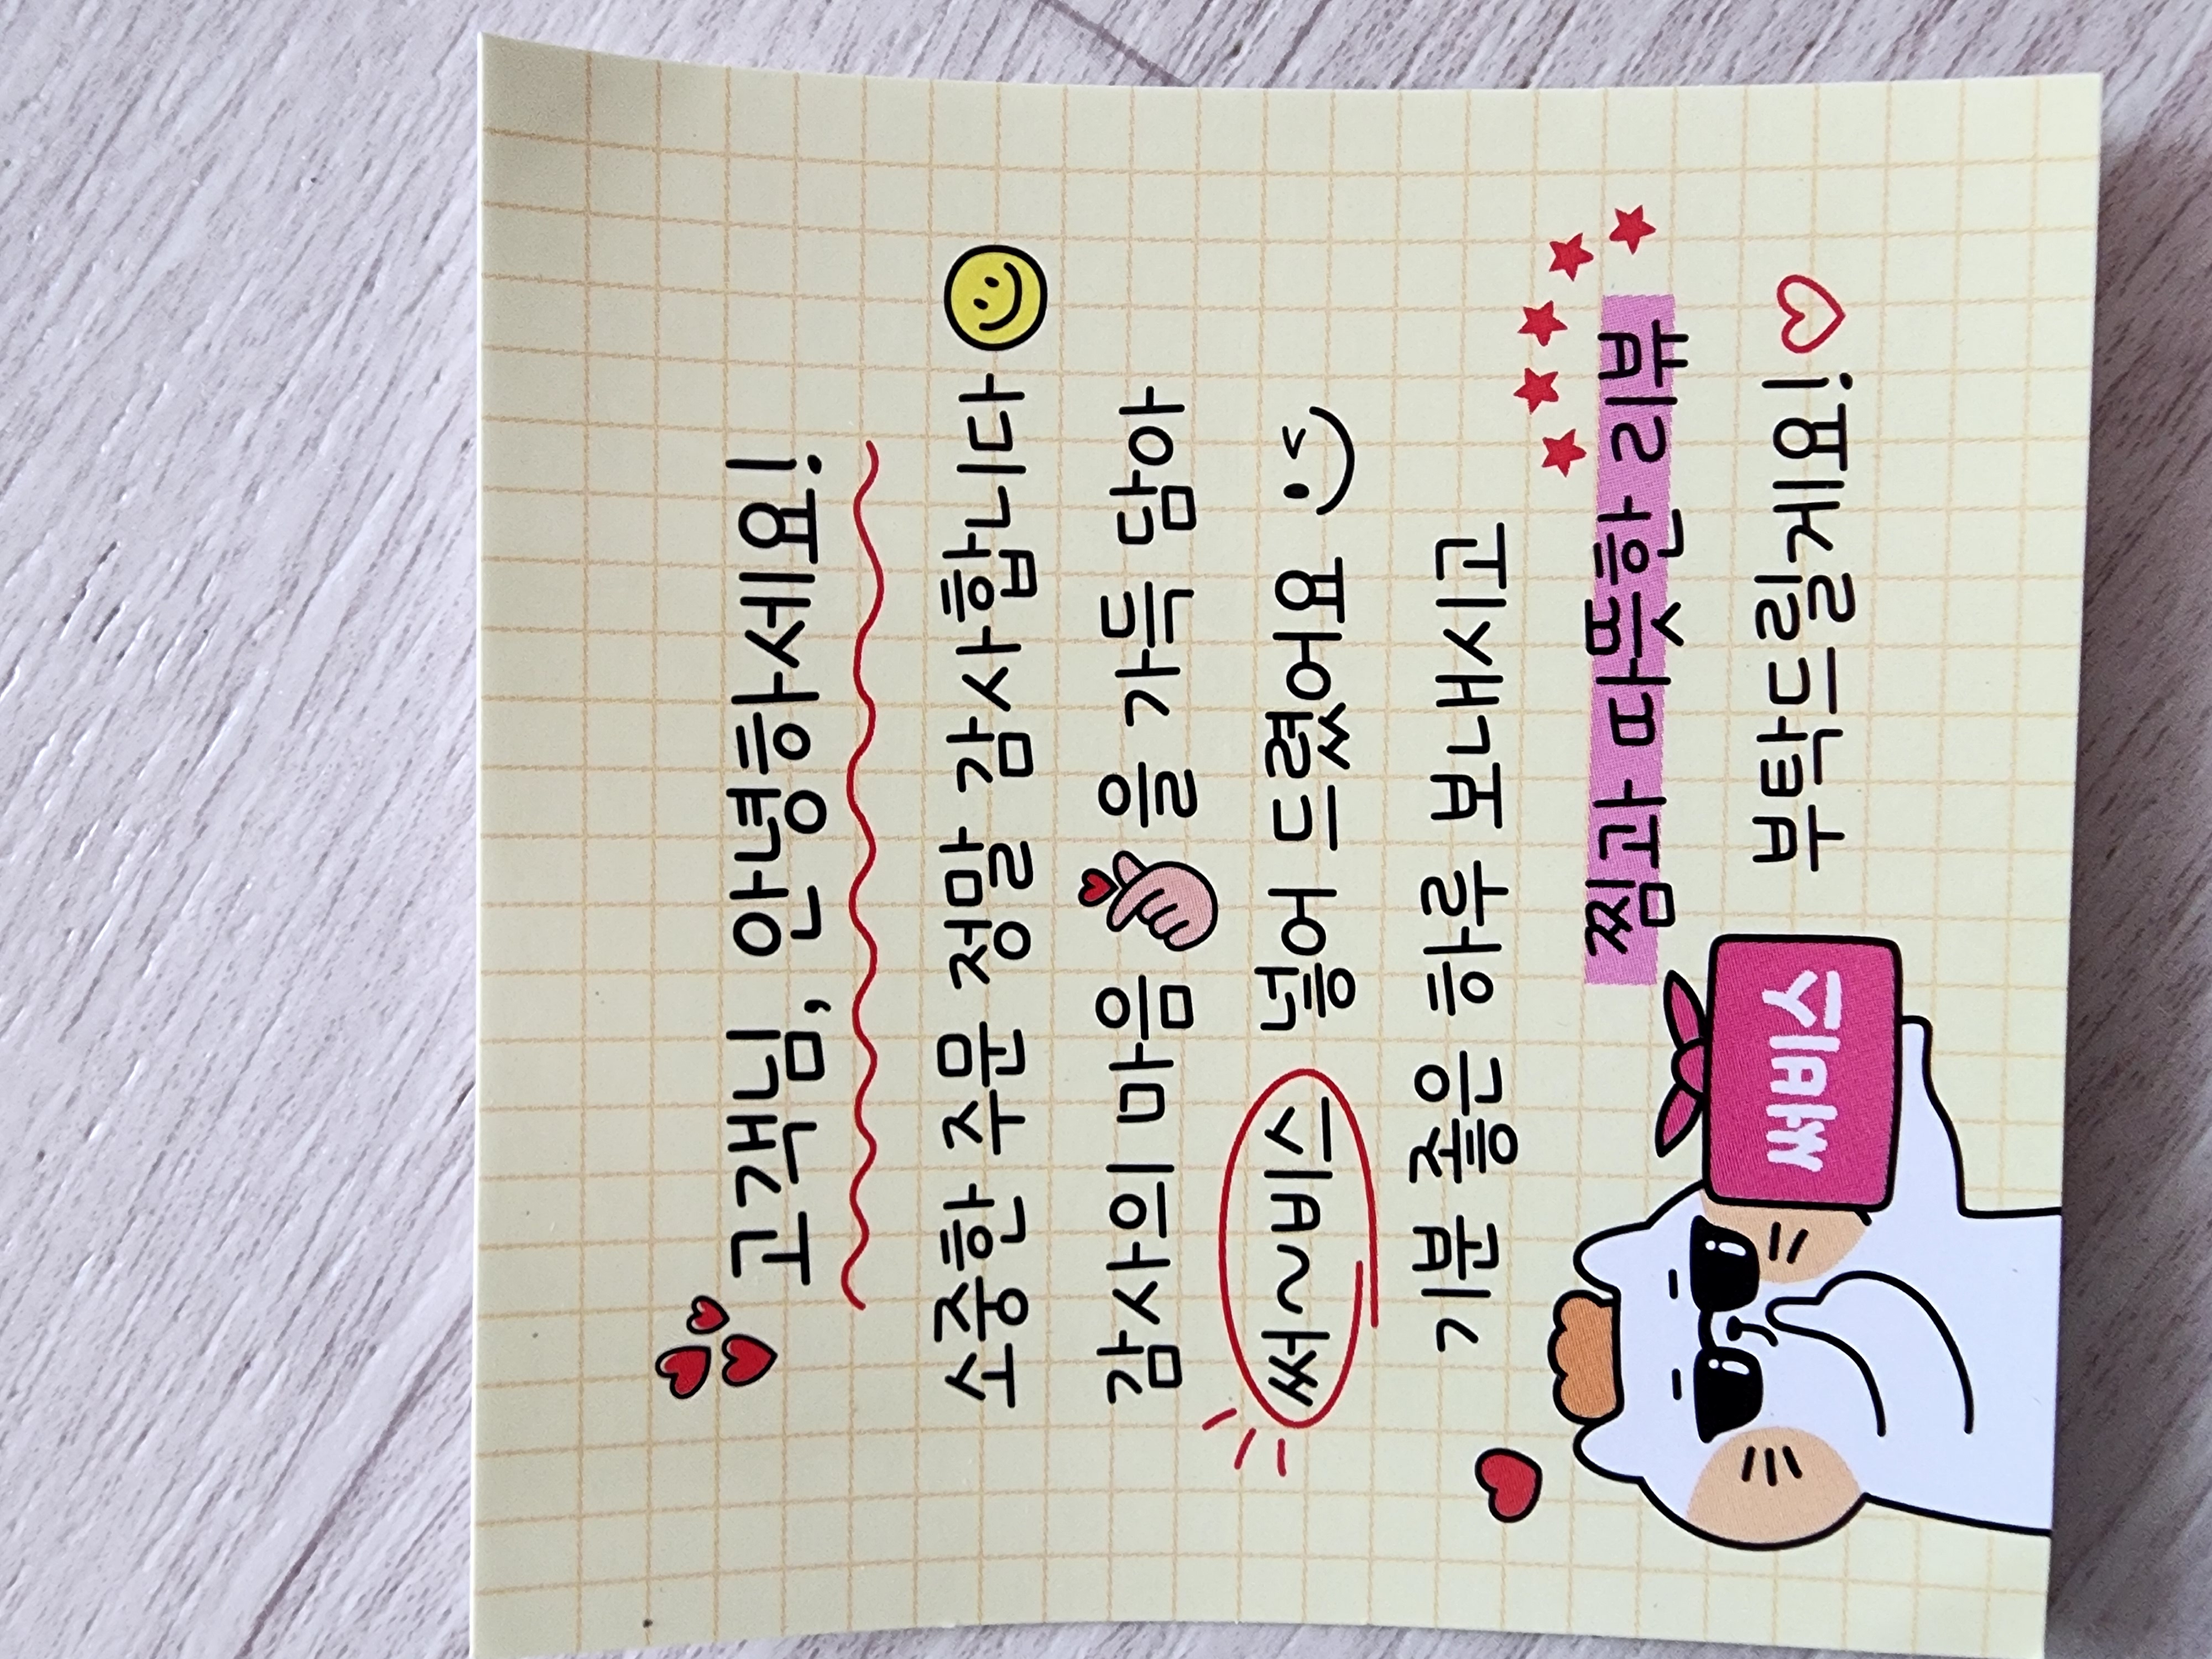 고객님, 안녕하세요!
소중한 주문 정말 감사합니다
감사의 마음을 가득 담아
써~비스 넣어 드렸어요
기분 좋은 하루 보내시고
찜과 따뜻한 리뷰
써비스
부탁드릴게요!